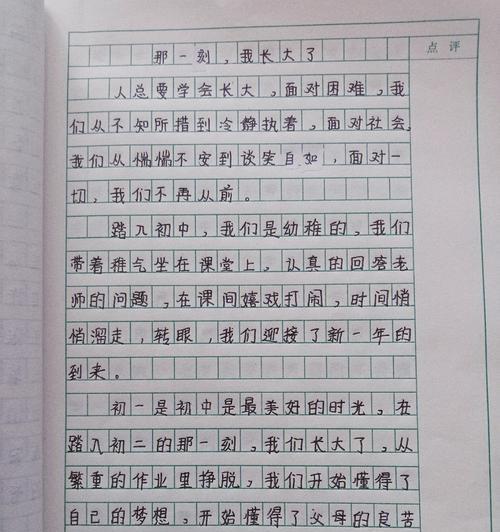 点评
那一刻，我长大了
人总要学会长大，面对困难，我
们从不知所措到冷静执着，面对社会，
我们从惴惴不安到谈笑自如，面对一
切，我们不再从前。
踏入初中，我们是幼稚的，我们
带着稚气坐在课堂上，认真的回答老
师的问题，在课间嬉戏打闹，时间悄
悄溜走，转眼，我们迎接了新一年的
到来。
初一是初中是最美好的时光，在
踏入初二的那一刻，我们长大了，从
繁重的作业里挣脱，我们开始懂得了
自己的梦想，开始懂得了父母的良苦